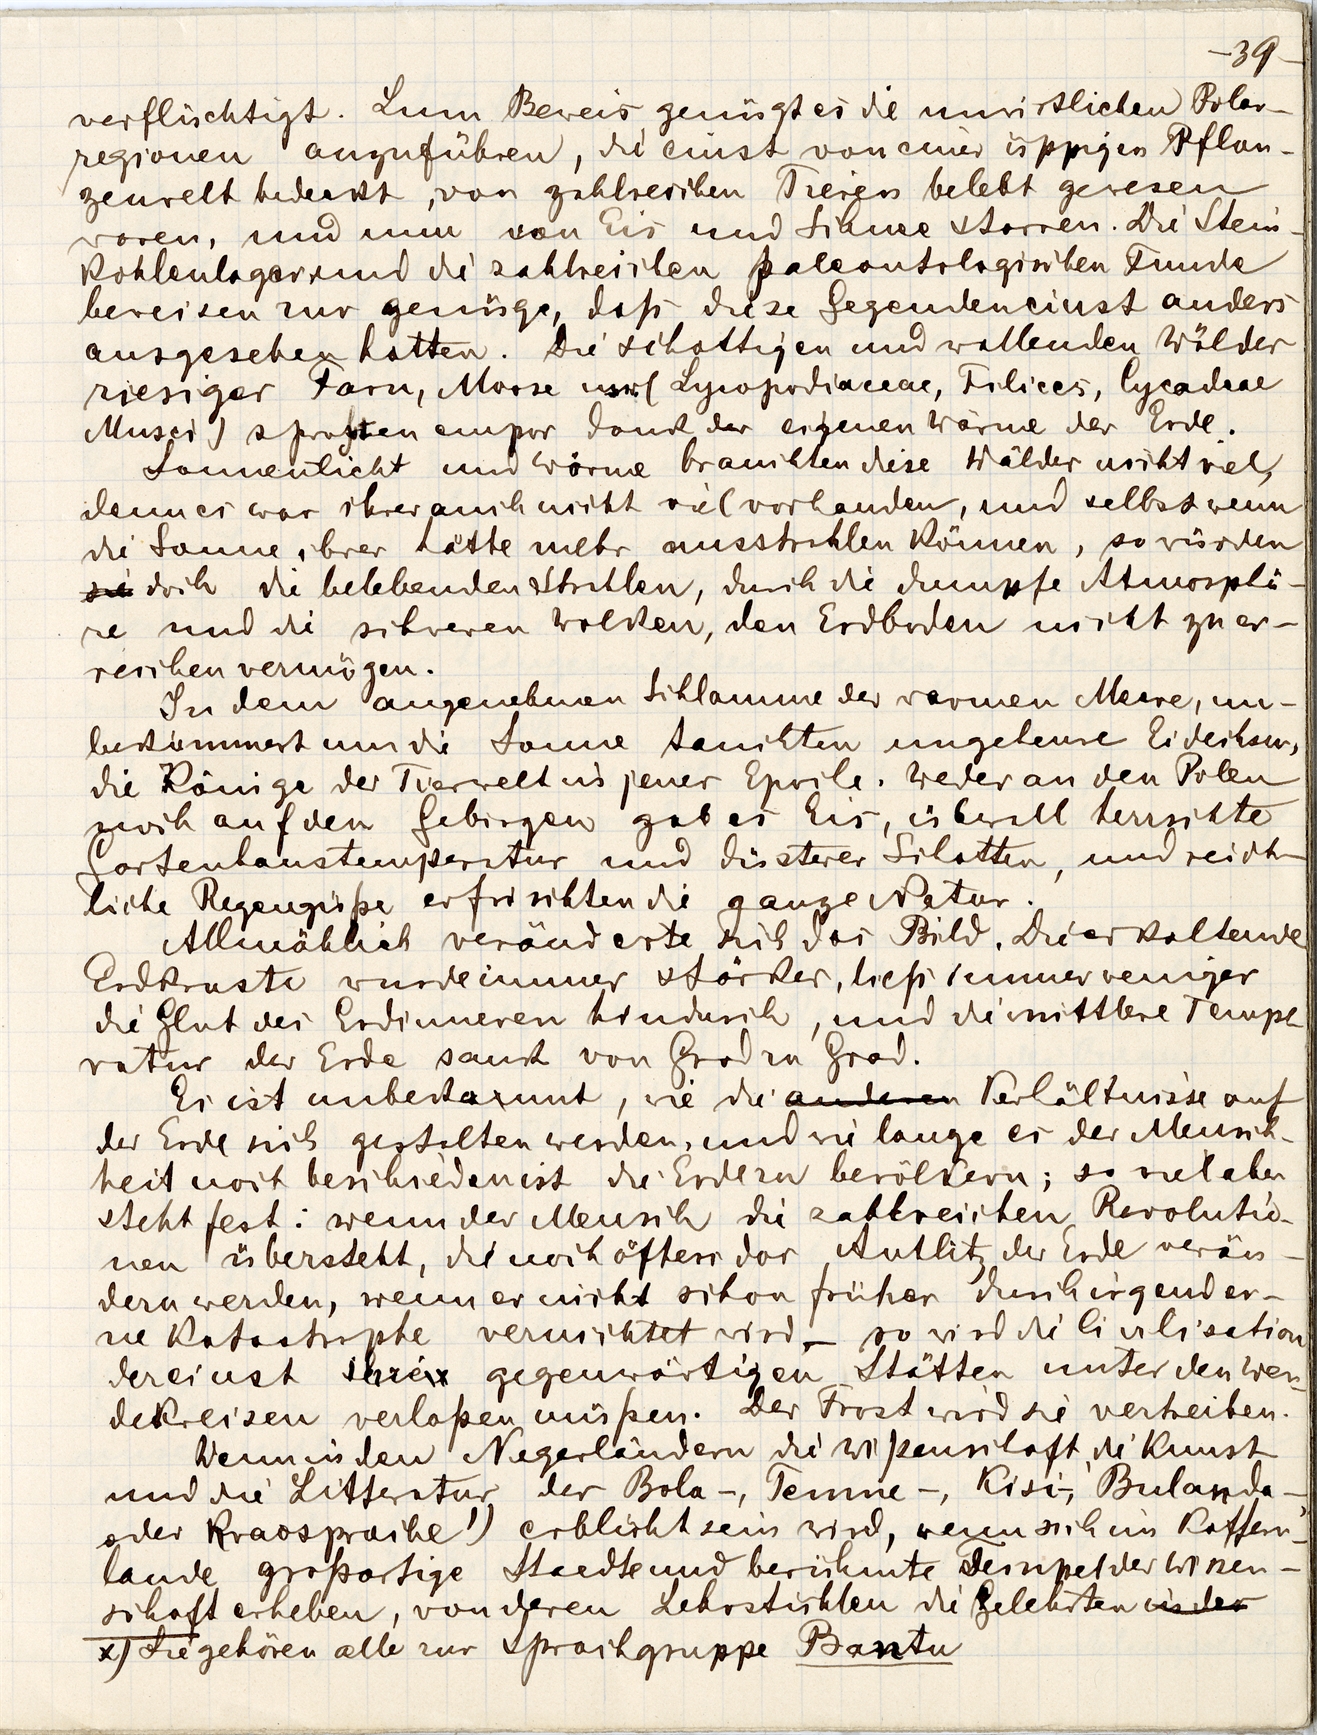 -39-
verflüchtigt. Zum Beweis genügt es die unwirtlichen Polar-
regionen anzuführen, die einst von einer üppigen Pflan-
zenwelt bedeckt, von zahlreichen Tieren belebt gewesen
waren, und nun von Eis und Schnee starren. Die Stein-
kohlenlager und die zahlreichen paleontologischen Funde
beweisen zur genüge, daß diese Gegenden einst anders
ausgesehen hatten. Die schattigen und wallenden Wälder
riesiger Farn, Moose usw( Lycopodiaceae, Filices, Cycadeae
Musci) sproßten empor dank der eigenen Wärme der Erde.
Sonnenlicht und Wärme brauchten diese Wälder nicht viel,
denn es war ihrer auch nicht viel vorhanden, und selbst wenn
die Sonne ihrer hätte mehr ausstrahlen können, so würden
sie doch die belebenden Strahlen, durch die dumpfe Atmosphä-
re und die schweren Wolken, den Erdboden nicht zu er-
reichen vermögen.
In dem angenehmen Schlamme der warmen Meere, un-
bekümmert um die Sonne tauchten ungeheure Eidechsen,
die Könige der Tierwelt in jener Epoche. Weder an den Polen
noch auf den Gebirgen gab es Eis, überall herrschte
Gartenhaustemperatur und düsterer Schatten, und reich-
liche Regengüße erfrischten die ganze Natur.
Allmählich veränderte sich das Bild. Die erkaltende
Erdkruste wurde immer stärker, ließ immer weniger
die Glut des Erdinneren hindurch, und die mittlere Tempe
ratur der Erde sank von Grad zu Grad.
Es ist unbekannt, wie die anderen Verhältnisse auf
der Erde sich gestalten werden, und wie lange es der Mensch-
heit noch beschieden ist die Erde zu bevölkern; so viel aber
steht fest: wenn der Mensch die zahlreichen Revolutio-
nen übersteht, die noch öfters das Antlitz der Erde verän-
dern werden, wenn er nicht schon früher durch irgend ei-
ne Katastrophe vernichtet wird – so wird die Civilisation
dereinst ihre gegenwärtigen Stätten unter den Wen-
dekreisen verlaßen müßen. Der Frost wird sie vertreiben.
Wenn in den Negerländern die Wißenschaft, die Kunst
und die Litteratur der Bola-, Temne-, Kisi-, Bulanda-
oder Kraosprache¹) erblickt sein wird, wenn sich im Kaffern-
lande großartige Staedte und berühmte Tempel der Wissen-
schaft erheben, von deren Lehrstühlen die Gelehrten in der
x) Sie gehören alle zur Sprachgruppe Bantu